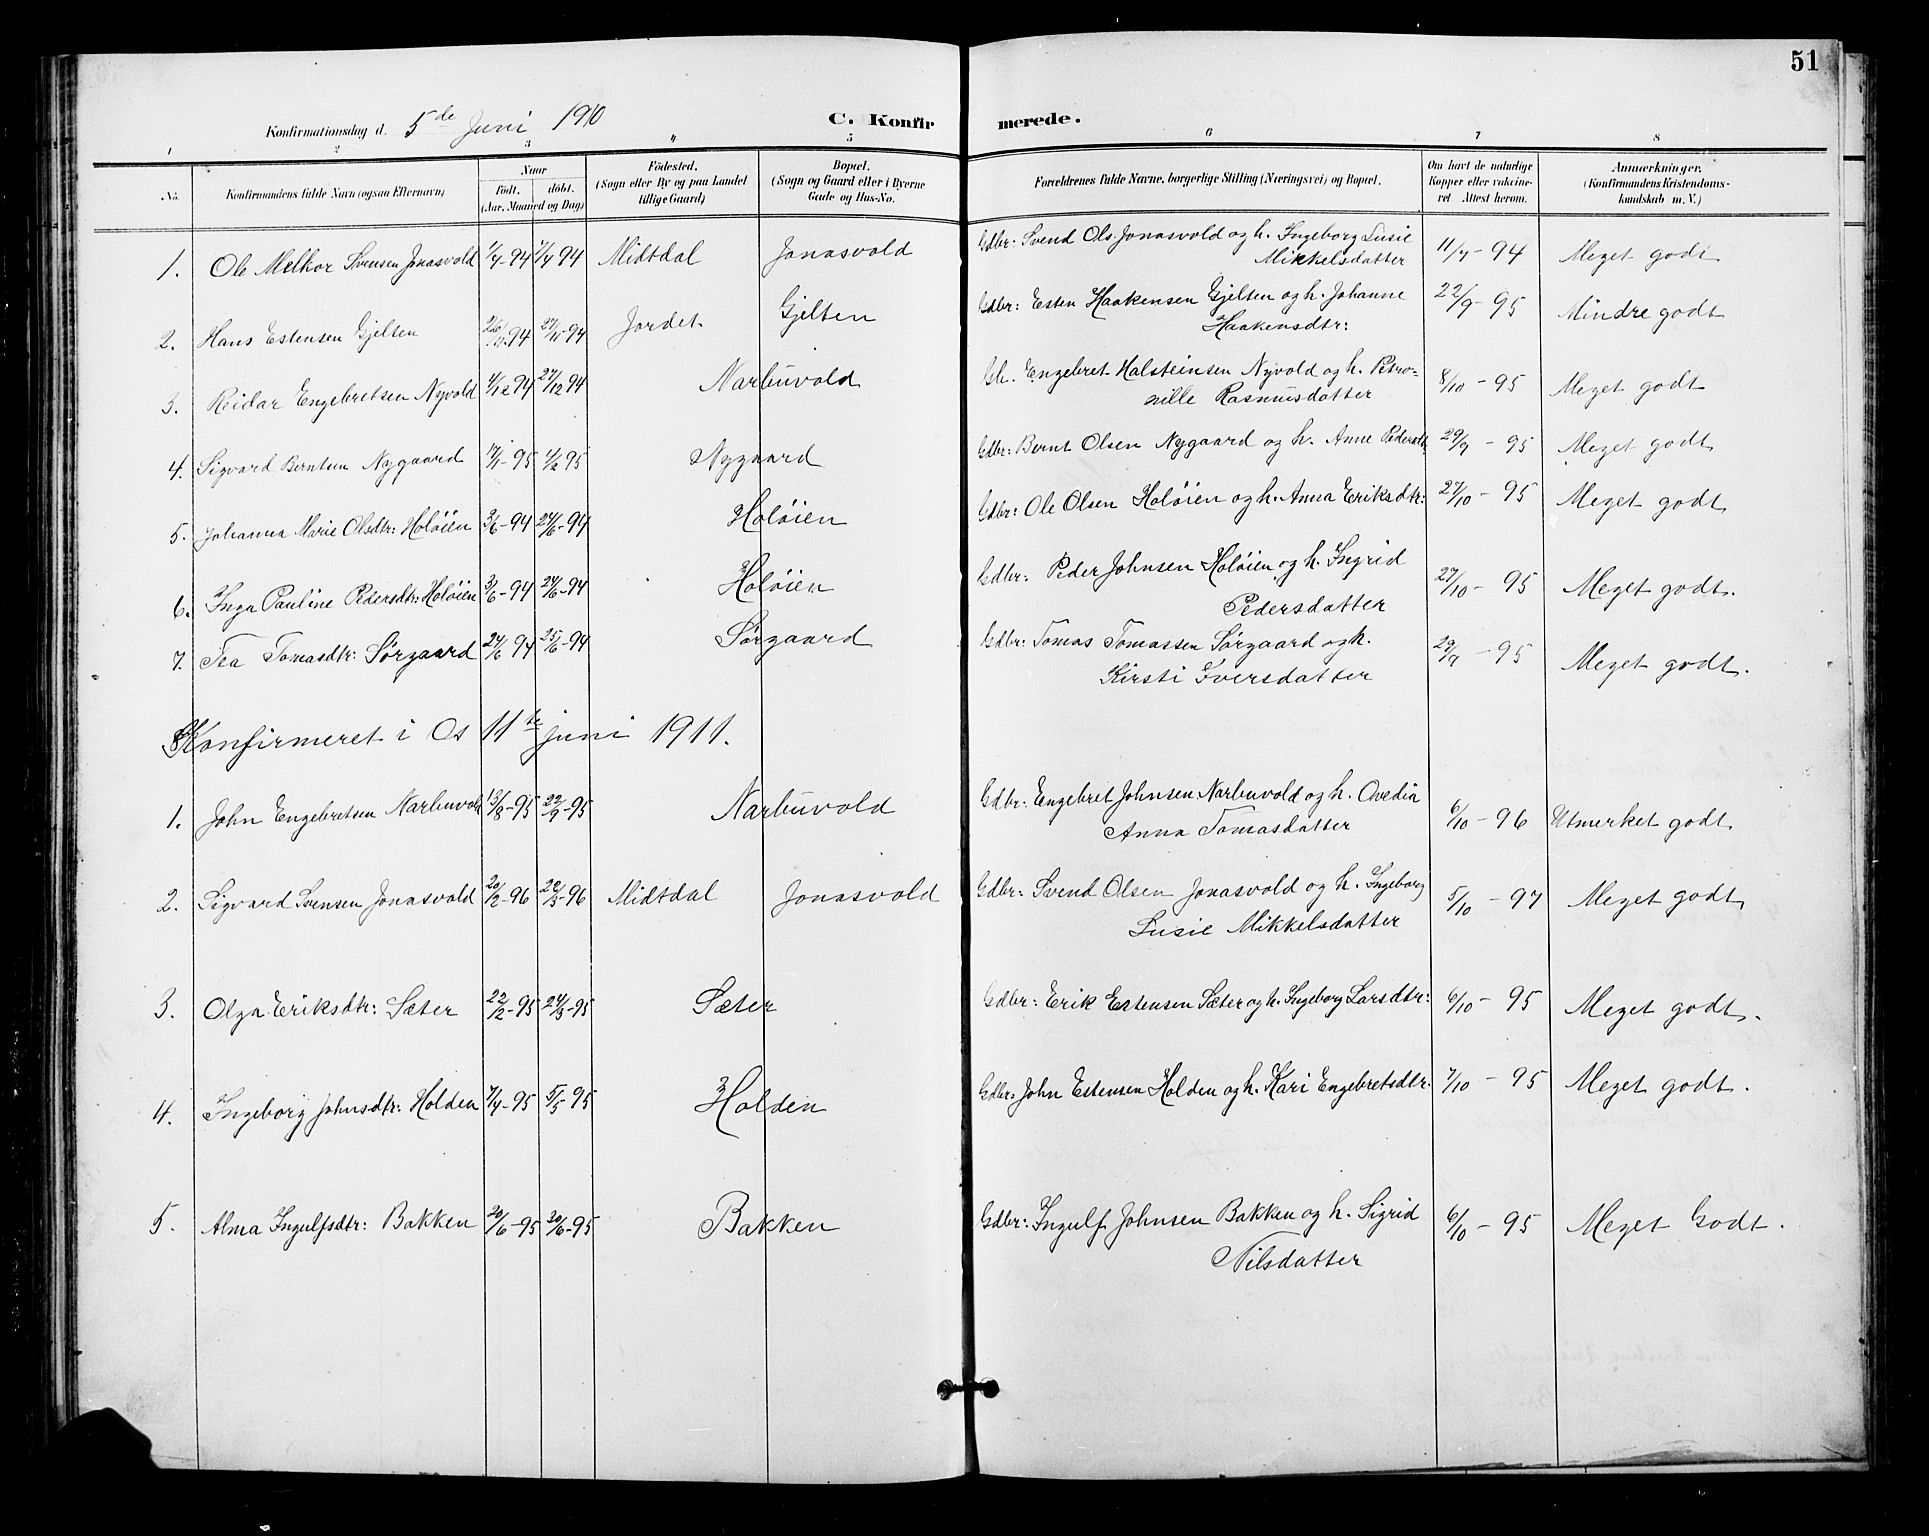 51
Konfirmationsdag d. 5de Juni 1910 C. Konfirmerede.
1 2 3 4 5 6 7 8
No. Konfirmandens fulde Navn (ogsaa Efternavn) Naar födt. döbt. (Aar, Maaned og Dag) Födested. (Sogn eller By og paa Landet tillige Gaard) Bopæl. (Sogn og Gaard eller i Byerne Gade og Hus-No. Forældrenes fulde Navne, borgerlige Stilling (Næringsvei) og Bopæl. Om havt de naturlige Kopper eller vakcineret Attest herom. Anmærkninger. (Konfirmandens Kristendomskundskab m. V.)
1. Ole Melkor Svensen Jonasvold 1/4-94 1/4 94 Midtdal Jonasvold Gdbr: Svend Ols. Jonasvold og h. Ingeborg Lusie Mikkelsdatter 11/7-94 Meget godt
2. Hans Estensen Gjelten 26/11-94 27/11-94 Jordet Gjelten Gdbr: Esten Haakensen Gjelten og h. Johanne Haakensdtr: 22/9-95 Mindre godt
3. Reidar Engebretsen Nyvold 1/12 94 27/12 94 Narbuvold Gb. Engebret Halsteinsen Nyvold og h. Petronille Rasmusdatter 8/10-95 Meget godt
4. Sigvard Berntsen Nygaard 17/1-95 4/2 95 Nygaard Gdbr: Bernt Olsen Nygaard og h. Anne Pedersdtr 29/9-95 Meget godt
5. Johanna Marie Olsdtr: Holøien 3/6-94 24/6-94 Holøien Gdbr: Ole Olsen Holøien og h. Anna Eriksdtr: 27/10-95 Meget godt
6. Inga Pauline Pedersdtr: Holøien 3/6-94 24/6-94 Holøien Gdbr: Peder Johnsen Holøien og h. Ingrid Pedersdatter 27/10-95 Meget godt.
7. Tea Tomasdtr: Sørgaard 24/6 94 25/6-94 Sørgaard Gdbr: Tomas Tomassen Sørgaard og h. Kirsti Iversdatter 29/9-95 Meget godt.
Konfirmeret i Os 11te juni 1911.
1. John Engebretsen Narbuvold 13/8-95 22/9-95 Narbuvold Gdbr: Engebret Johnsen Narbuvold og h. Ovedia Anna Tomasdatter 6/10-96 Utmerket godt
2. Sigvard Svensen Jonasvold 20/2-96 22/3-96 Midtdal Jonasvold Gdbr: Svend Olsen Jonasvold og h. Ingeborg Lusie Mikkelsdatter 5/10-97 Meget godt
3. Olga Eriksdtr: Sæter 22/2-95 24/3-95 Sæter Gdbr: Erik Estensen Sæter og h. Ingeborg Larsdtr: 6/10-95 Meget godt.
4. Ingeborg Johnsdtr: Holden 7/4-95 5/5 95 Holden Gdbr: John Estensen Holden og h. Kari Engebretsdtr. 7/10-95 Meget godt.
5. Alma Ingulfsdtr: Bakken 20/6-95 30/6-95 Bakken Gdbr: Ingulf Johnsen Bakken og h. Sigrid Nilsdatter 6/10-95 Meget Godt.